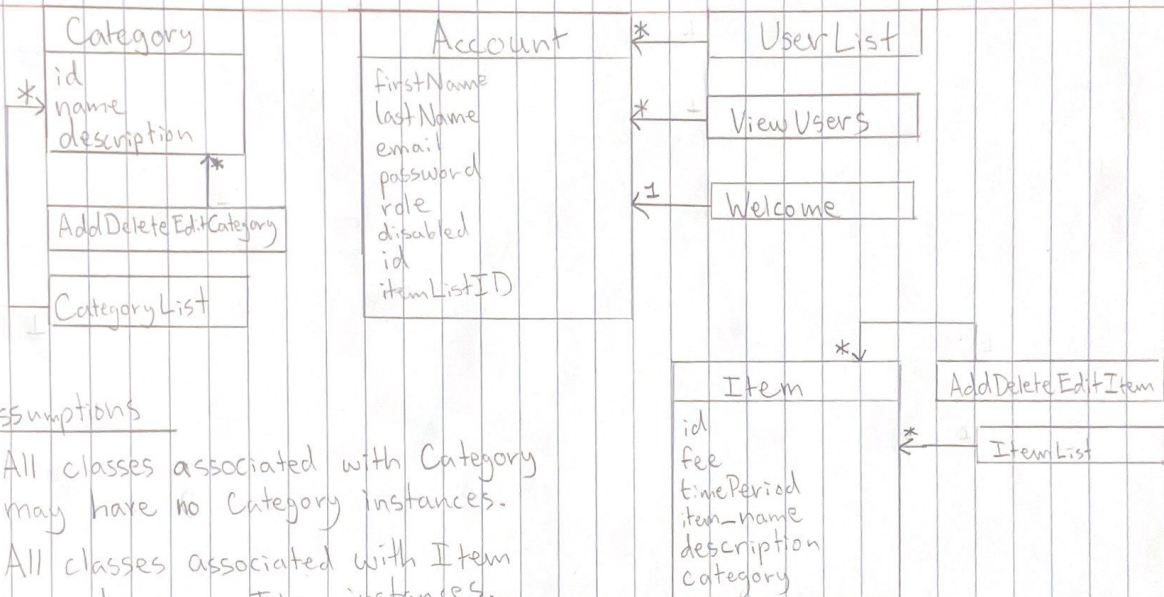 Category
id
name
description
*
*
AddDeleteEditCategory
CategoryList
Account
firstName
lastName
email
password
role
disabled
id
itemListID
*
UserList
*
ViewUsers
1
Welcome
*
Item
id
fee
timePeriod
item_name
description
category
AddDeleteEditItem
*
ItemList
ssumptions
All classes associated with Category
may have no Category instances.
All classes associated with Item
instances.